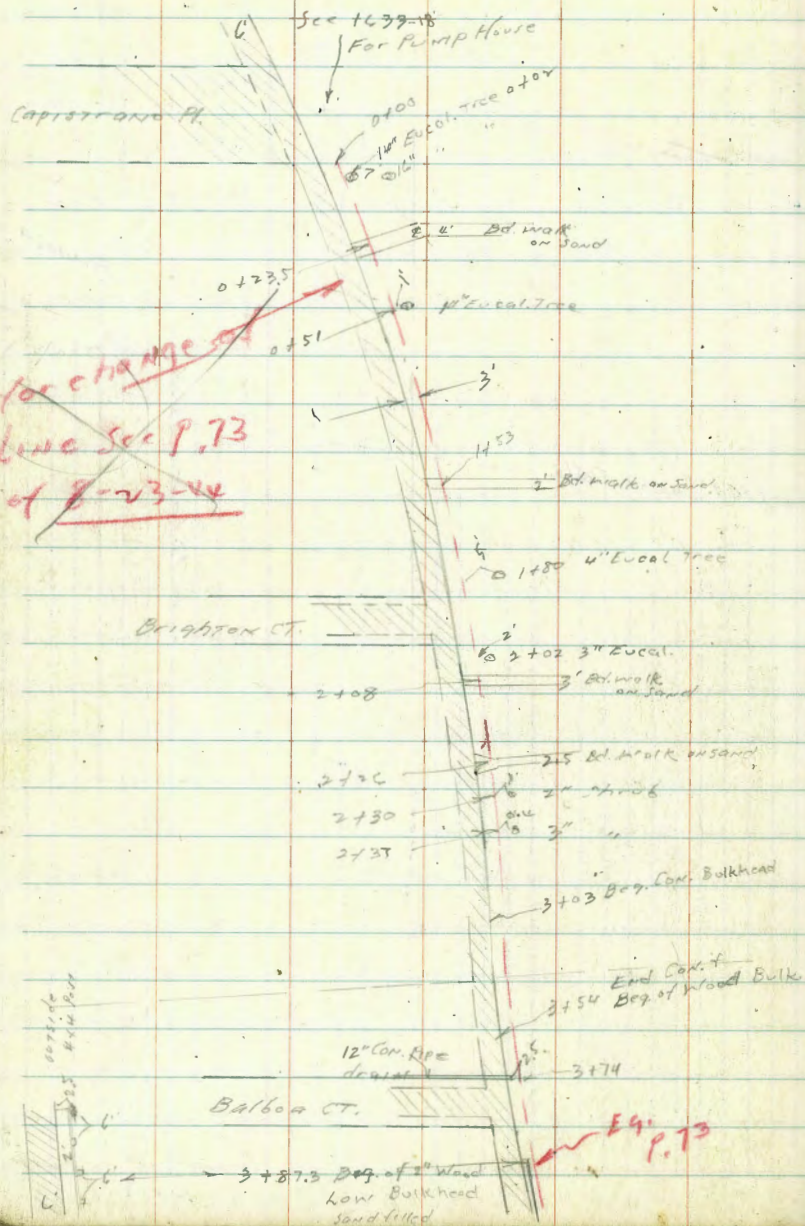 See 1633-18
For Pump House
6'
Capistrano Pl.
0+00
14" Eucal. Tree 0+02
7' 16" " "
4' Bd. walk
on sand
0+23.5
1'
Eucal. Tree
0+51
For change of
Line See P. 73
of 8-23-44
3'
1+53
2' Bd. walk on sand
1+80 4" Eucal Tree
Brighton CT.
2'
2+02 3" Eucal.
3' Bd. walk
on sand
2+08
2.5 Bd. walk on sand
2+26
2+30
2" shrub
2+35
3" "
3+03 Beg. Con. Bulkhead
End Con. +
Beg. of Wood Bulk
3+54
12" Con. Pipe
drain
2.5
3+74
Balboa CT.
outside
4x4 Post
2.5
2'
6'
6'
6'
Eq.
P. 73
3+87.3 Beg. of 2" Wood
Low Bulkhead
sand filled